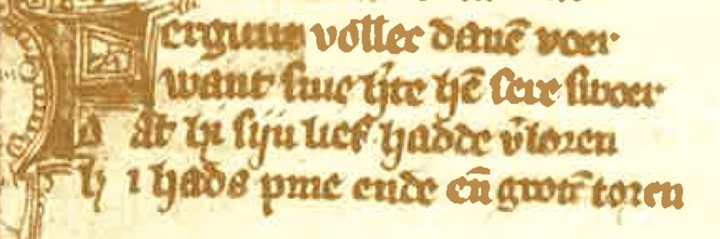 Ferguut voller danē voer·
want sine h̄te hē sere swoer
D at hi sijn lief hadde v̄loren
h i hads pine ende eñ grotē toren